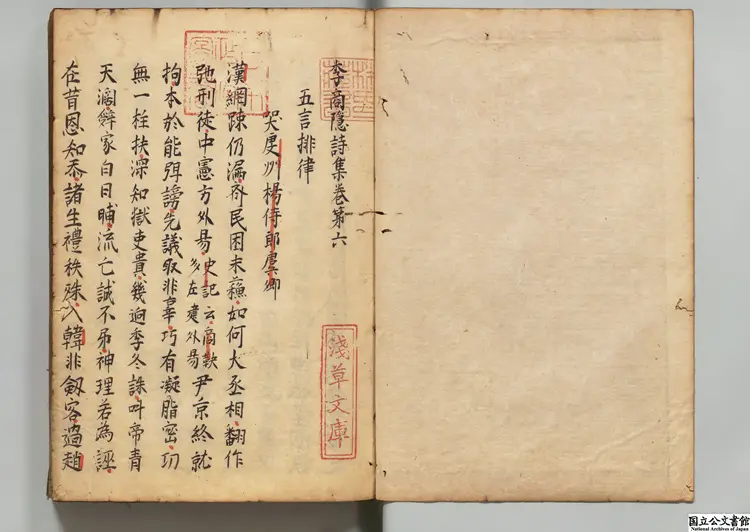 李商隐詩集卷第六
五言排律
哭虔州楊侍郎虞卿
漢網踈仍漏齊民困未蘓如何大丞相翻作
弛刑徒中憲方外易史記云商鞅
多左建外易尹京終就
拘本於能弭謗先議取非辜巧有凝脂密功
無一柱扶深知獄吏貴幾迫季冬誅叫帝青
天濶辞家白日晡流亡誠不弔神理若為誣
在昔恩知忝諸生禮秩殊入韓非劔客過趙
淺草文庫
国立公文書館
National Archives of Japan